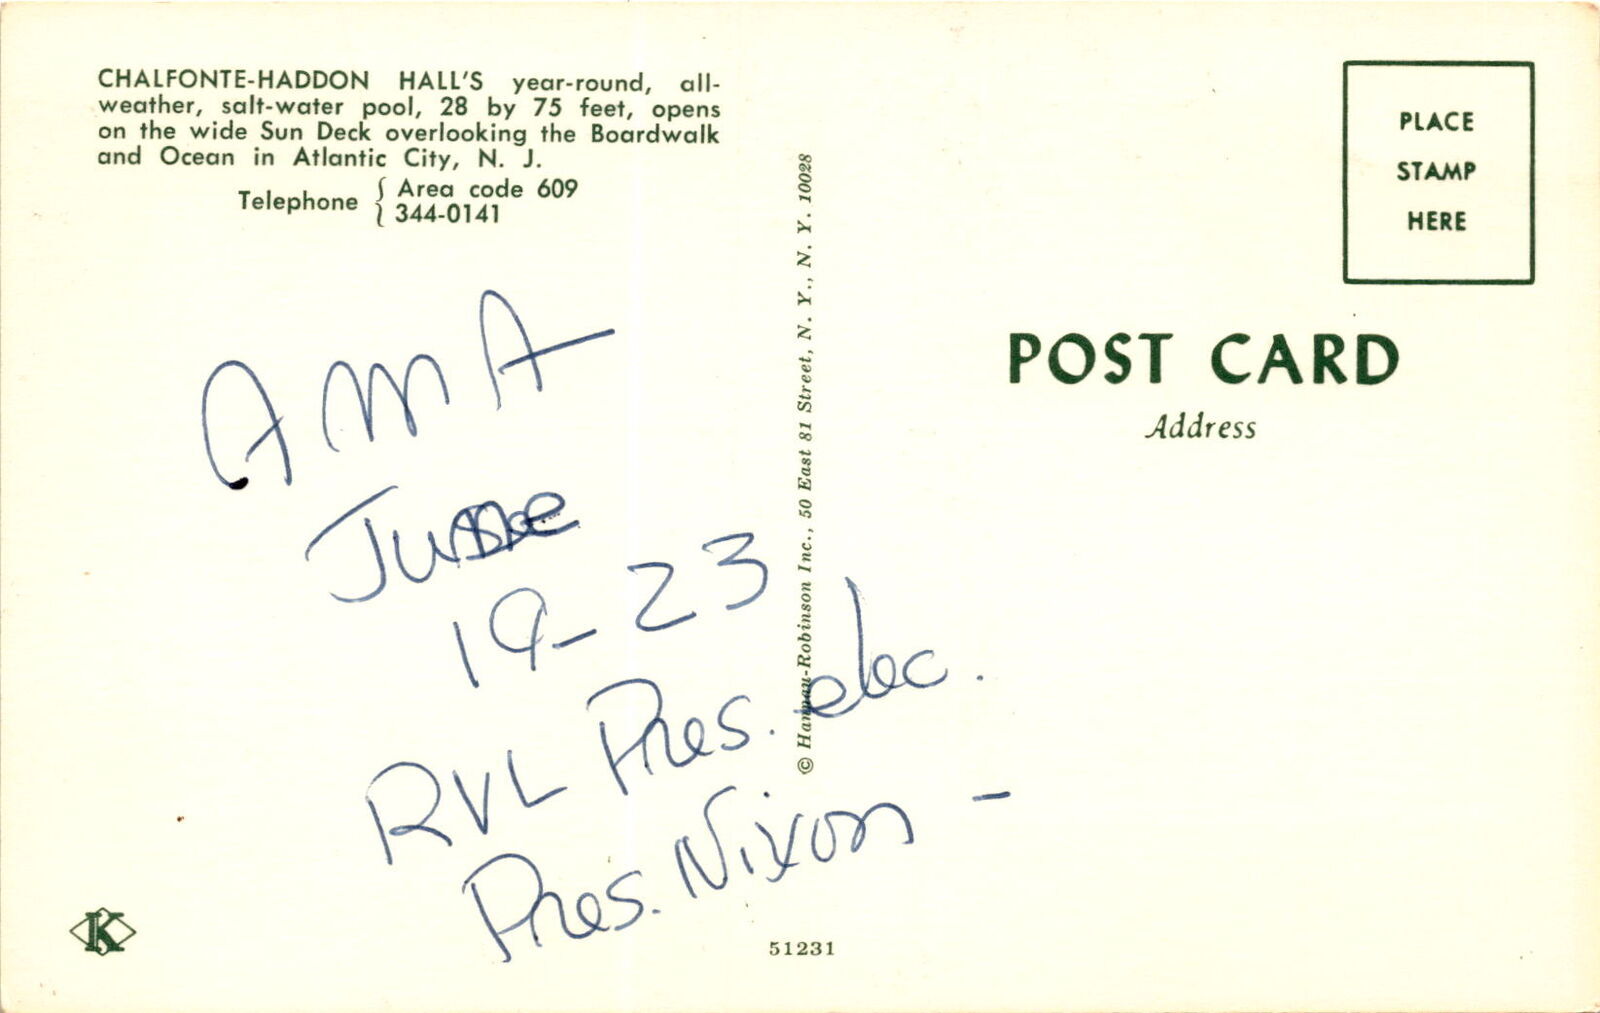 CHALFONTE-HADDON HALL'S year-round, all-
weather, salt-water pool, 28 by 75 feet, opens
on the wide Sun Deck overlooking the Boardwalk
and Ocean in Atlantic City, N. J.
Telephone { Area code 609
344-0141
AMA
June
19-23
RVL Pres. elec.
Pres. Nixon -
K
51231
© Hannau-Robinson Inc., 50 East 81 Street, N. Y., N. Y. 10028
PLACE
STAMP
HERE
POST CARD
Address